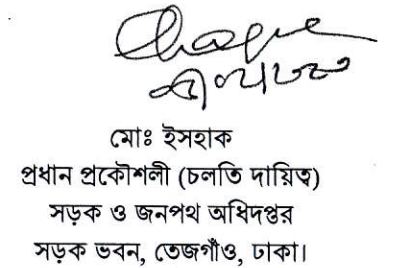 মোঃ ইসহাক
প্রধান প্রকৌশলী (চলতি দায়িত্ব)
সড়ক ও জনপথ অধিদপ্তর
সড়ক ভবন, তেজগাঁও, ঢাকা।